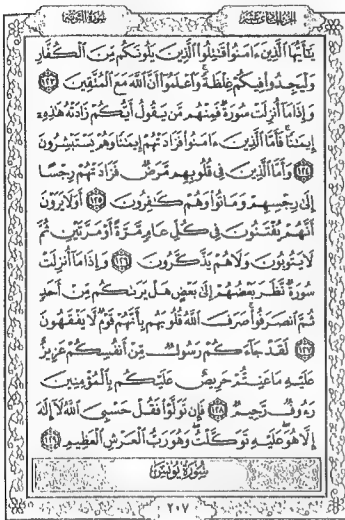 الجزء الحادي عشر
سورة التوبة
يَٰٓأَيُّهَا ٱلَّذِينَ ءَامَنُوا۟ قَٰتِلُوا۟ ٱلَّذِينَ يَلُونَكُم مِّنَ ٱلْكُفَّارِ
وَلْيَجِدُوا۟ فِيكُمْ غِلْظَةً وَٱعْلَمُوٓا۟ أَنَّ ٱللَّهَ مَعَ ٱلْمُتَّقِينَ ١٢٣
وَإِذَا مَآ أُنزِلَتْ سُورَةٌ فَمِنْهُم مَّن يَقُولُ أَيُّكُمْ زَادَتْهُ هَٰذِهِۦٓ
إِيمَٰنًا فَأَمَّا ٱلَّذِينَ ءَامَنُوا۟ فَزَادَتْهُمْ إِيمَٰنًا وَهُمْ يَسْتَبْشِرُونَ
١٢٤ وَأَمَّا ٱلَّذِينَ فِى قُلُوبِهِم مَّرَضٌ فَزَادَتْهُمْ رِجْسًا
إِلَىٰ رِجْسِهِمْ وَمَاتُوا۟ وَهُمْ كَٰفِرُونَ ١٢٥ أَوَلَا يَرَوْنَ
أَنَّهُمْ يُفْتَنُونَ فِى كُلِّ عَامٍ مَّرَّةً أَوْ مَرَّتَيْنِ ثُمَّ
لَا يَتُوبُونَ وَلَا هُمْ يَذَّكَّرُونَ ١٢٦ وَإِذَا مَآ أُنزِلَتْ
سُورَةٌ نَّظَرَ بَعْضُهُمْ إِلَىٰ بَعْضٍ هَلْ يَرَىٰكُم مِّنْ أَحَدٍ
ثُمَّ ٱنصَرَفُوا۟ صَرَفَ ٱللَّهُ قُلُوبَهُم بِأَنَّهُمْ قَوْمٌ لَّا يَفْقَهُونَ
١٢٧ لَقَدْ جَآءَكُمْ رَسُولٌ مِّنْ أَنفُسِكُمْ عَزِيزٌ
عَلَيْهِ مَا عَنِتُّمْ حَرِيصٌ عَلَيْكُم بِٱلْمُؤْمِنِينَ
رَءُوفٌ رَّحِيمٌ ١٢٨ فَإِن تَوَلَّوْا۟ فَقُلْ حَسْبِىَ ٱللَّهُ لَآ إِلَٰهَ
إِلَّا هُوَ عَلَيْهِ تَوَكَّلْتُ وَهُوَ رَبُّ ٱلْعَرْشِ ٱلْعَظِيمِ ١٢٩
سُورَةُ يُونُسَ
٢٠٧